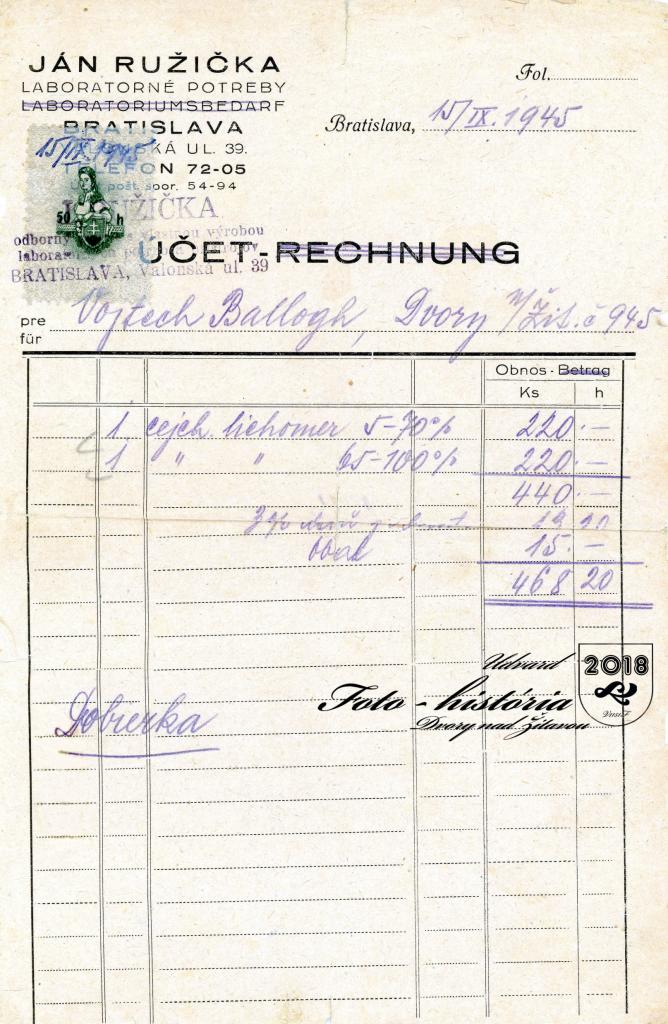 JÁN RUŽIČKA
Fol.
LABORATORNÉ POTREBY
LABORATORIUMSBEDARF
BRATISLAVA
Bratislava, 15/IX. 1945
15/IX. 1945
KÁ UL. 39.
TELEFON 72-05
pošt. spor. 54-94
50 h
RUŽIČKA
odborný vlastnou výrobou
BRATISLAVA, Valonská ul. 39
ÚČET-RECHNUNG
pre Vojtech Ballogh, Dvory n/Žit. č 945
für
Obnos - Betrag
Ks h
1 cejch. liehomer 5-70% 220.—
1 " " 65-100% 220.—
440.—
3% 13 20
Obal 15.—
468 20
Udvard
2018
Foto - história
Dvory nad Žitavou
VasiF
Dobierka